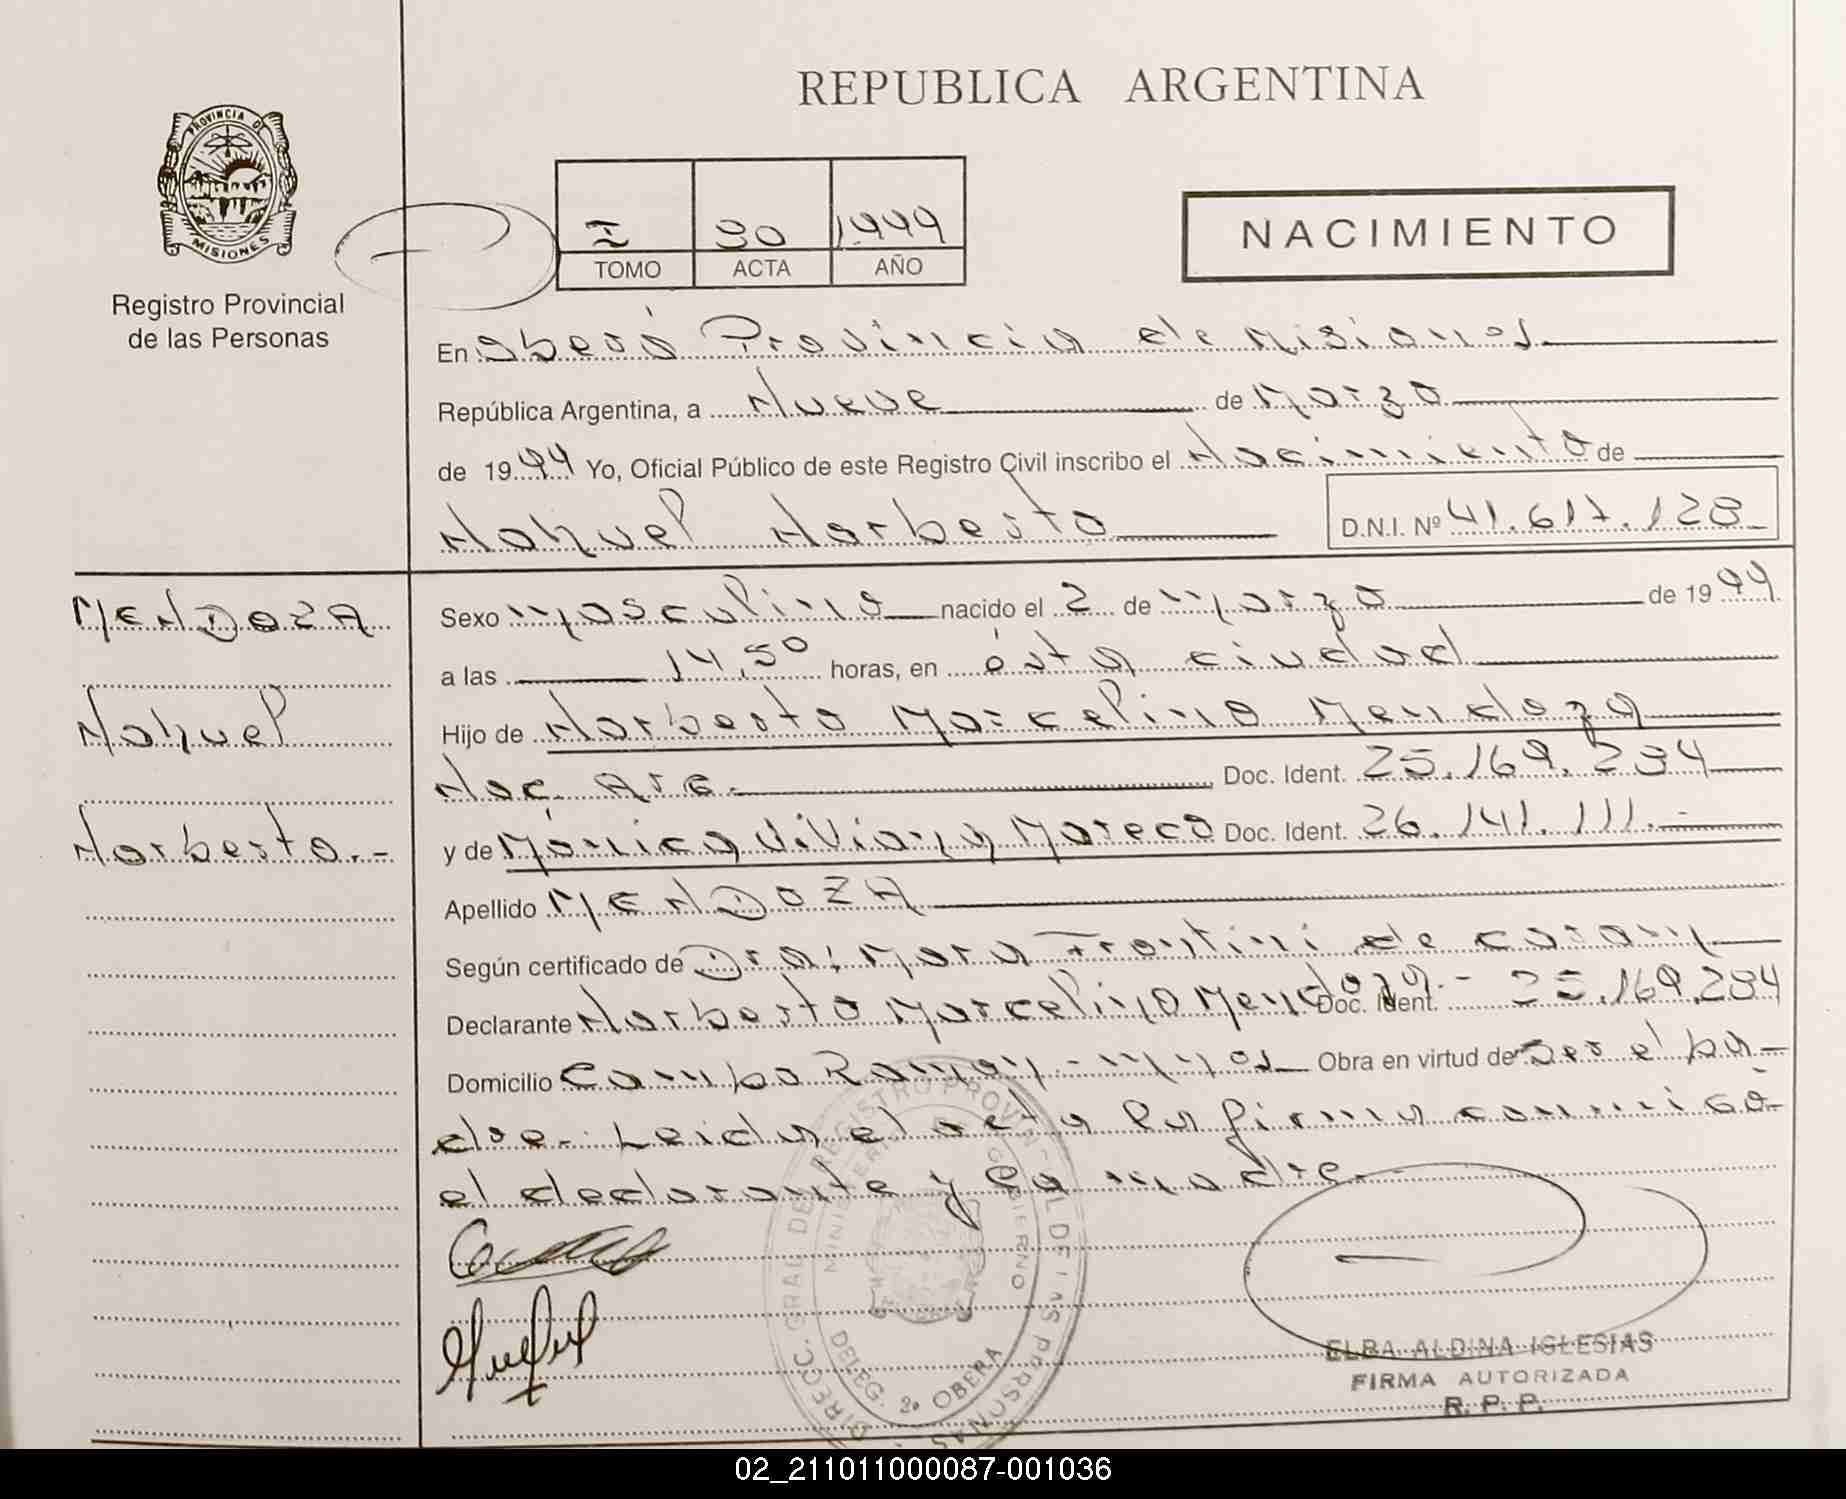 REPUBLICA ARGENTINA
PROVINCIA DE
MISIONES
Registro Provincial
de las Personas
I 90 1999
TOMO ACTA AÑO
NACIMIENTO
En Oberá Provincia de Misiones
República Argentina, a Nueve de Marzo
de 1999 Yo, Oficial Público de este Registro Civil inscribo el Nacimiento de
Nahuel Norberto D.N.I. Nº 41.617.128
MENDOZA
Nahuel
Norberto.-
Sexo masculino nacido el 2 de marzo de 1999
a las 14,50 horas, en ésta ciudad
Hijo de Norberto Marcelino Mendoza
Nac. Arg. Doc. Ident. 25.169.294
y de Mónica Viviana Moreco Doc. Ident. 26.141.111.-
Apellido MENDOZA
Según certificado de Dra: Mara Frontini de
Declarante Norberto Marcelino Mendoza.- Doc. Ident. 25.169.294
Domicilio Campo Ramon - mnes Obra en virtud de Ser el pa-
dre. Leida el acta la firma conmigo
el declarante y la madre.
DIRECC. GRAL DE REGISTRO PROVINCIAL DE LAS PERSONAS
MINISTERIO GOBIERNO
DELEG. 2a OBERA
ELBA ALDINA IGLESIAS
FIRMA AUTORIZADA
R. P. P.
02_211011000087-001036